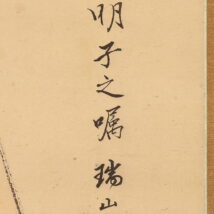 明子之嘱瑞山